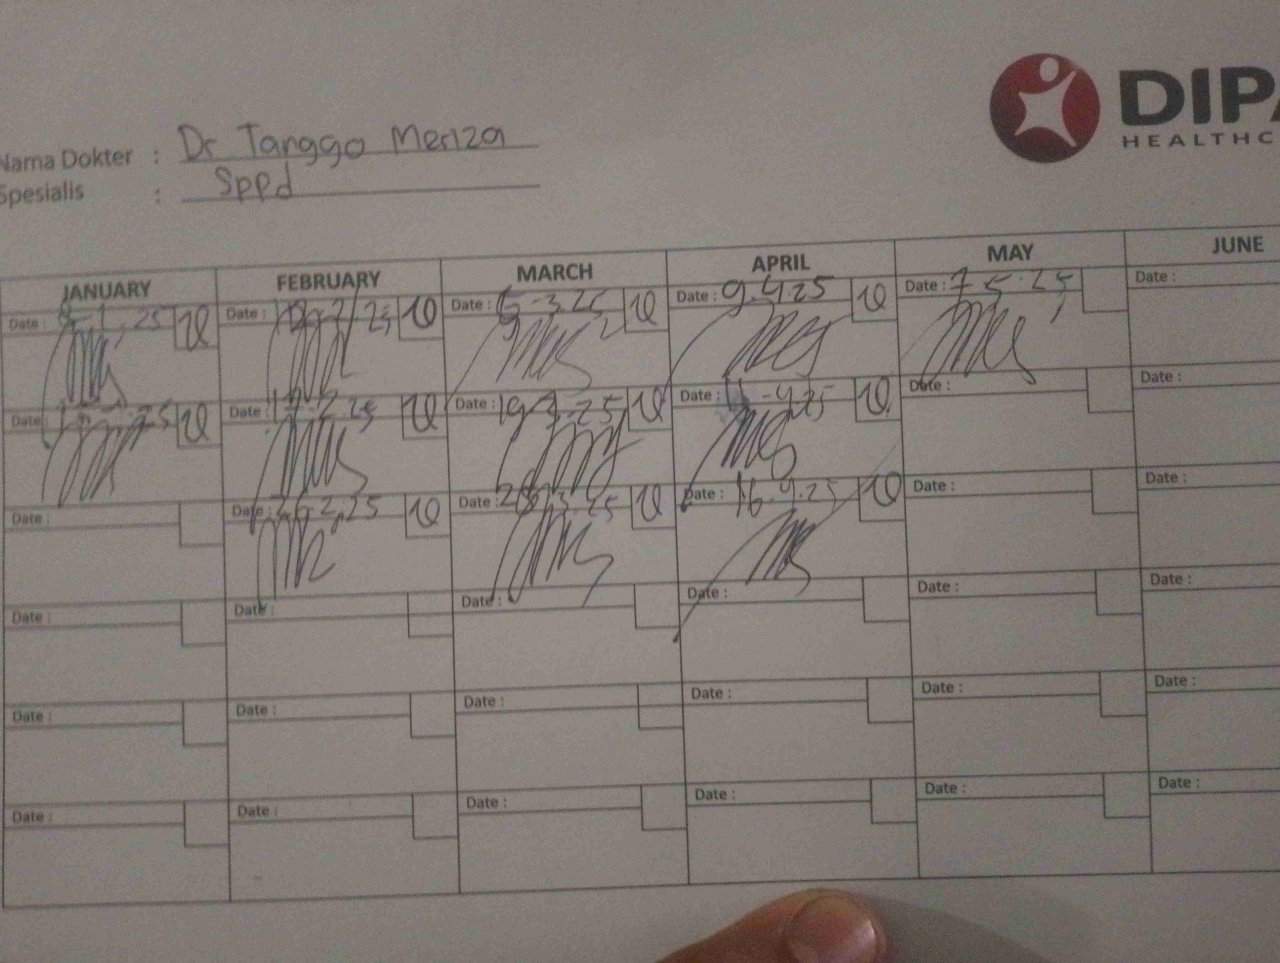 DIPA
HEALTHC
Nama Dokter : Dr Tanggo Meriza
Spesialis : Sppd
JANUARY FEBRUARY MARCH APRIL MAY JUNE
Date : Date : Date : 5-3.25 Date : 9.4.25 Date : 7 5.25 Date :
Date : Date : 17-2.25 Date : 19-3-25 Date : Date : Date :
Date : Date : 26-2.25 Date : Date : 16-4.25 Date : Date :
Date : Date : Date : Date : Date : Date :
Date : Date : Date : Date : Date : Date :
Date : Date : Date : Date : Date : Date :